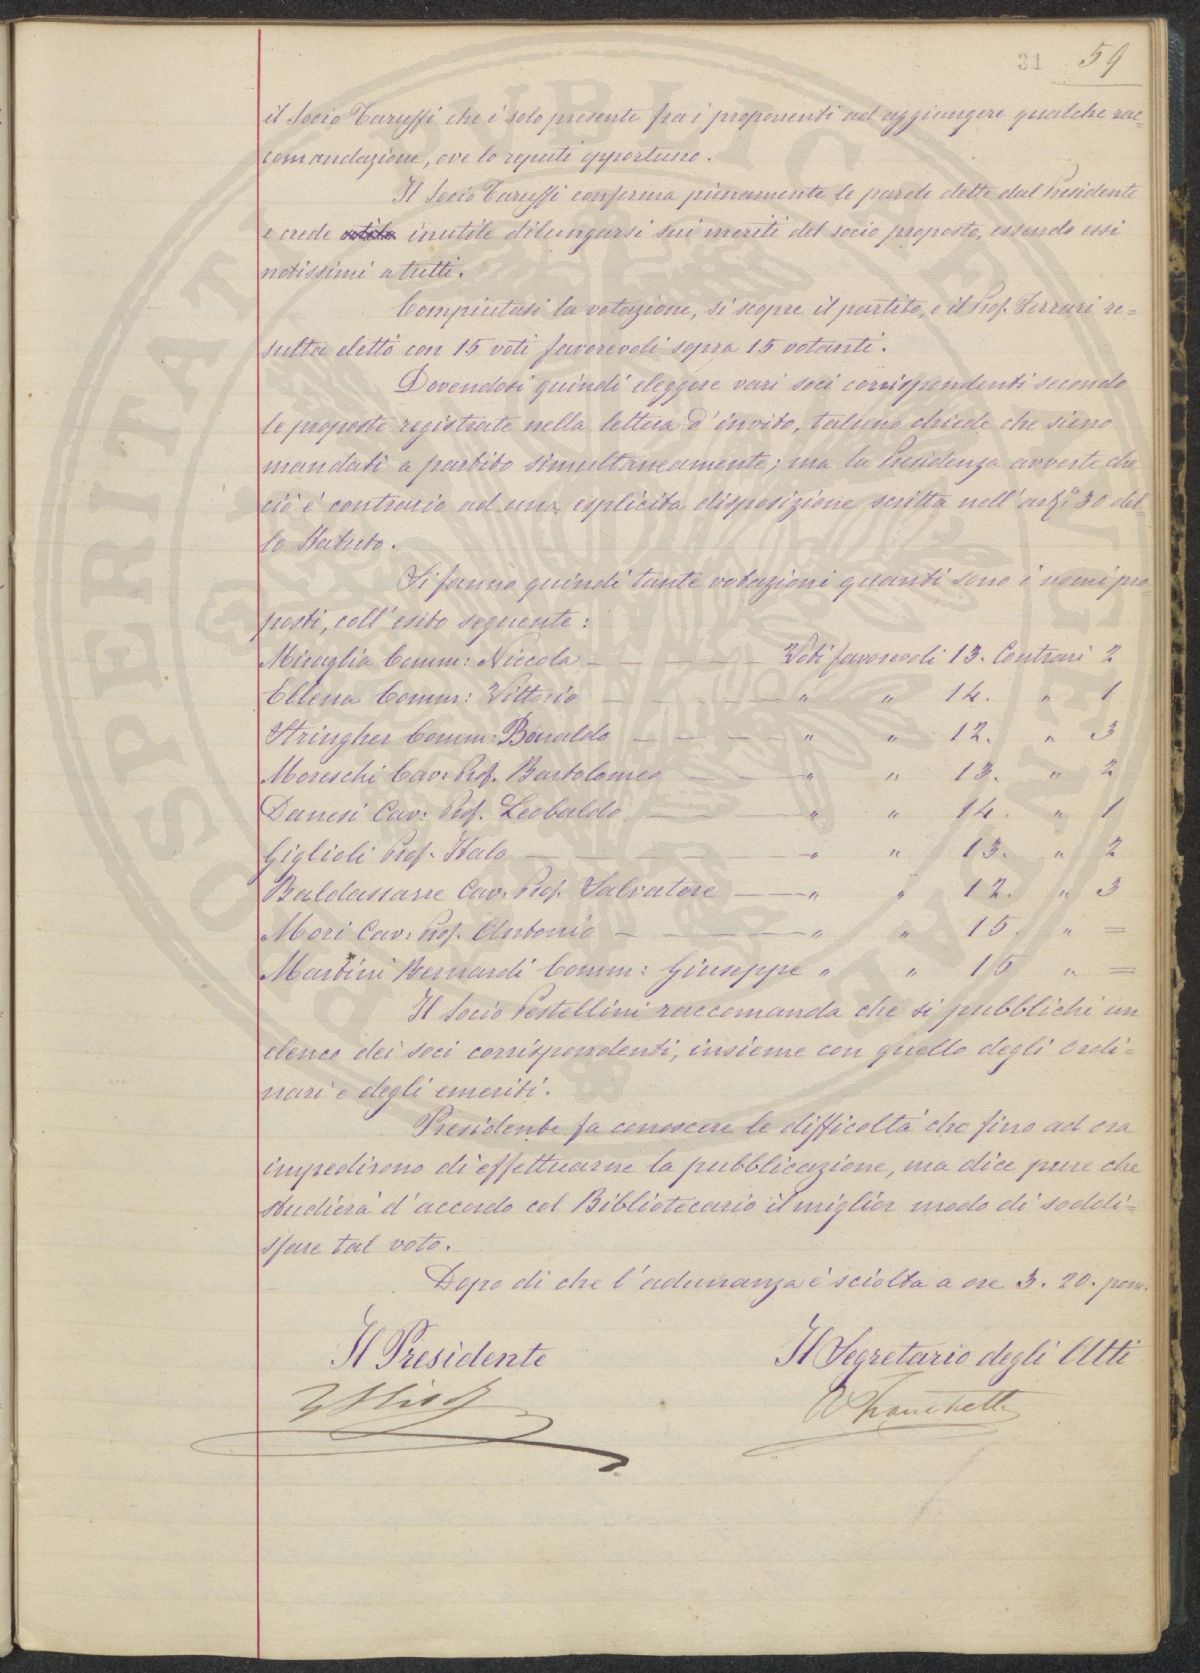 31 59
il Socio Taruffi che è solo presente fra i proponenti ad aggiungere qualche rac=
comandazione, ove lo reputi opportuno.
Il Socio Taruffi conferma pienamente le parole dette dal Presidente
e crede inutile dilungarsi sui meriti del socio proposto, essendo essi
notissimi a tutti.
Compiutasi la votazione, si scopre il partito, e il Prof. Ferrari re=
sulta eletto con 15 voti favorevoli sopra 15 votanti.
Dovendosi quindi eleggere vari soci corrispondenti secondo
le proposte registrate nella lettera d'invito, taluno chiede che sieno
mandati a partito simultaneamente; ma la Presidenza avverte che
ciò è contrario ad una esplicita disposizione scritta nell'art.° 30 del=
lo Statuto.
Si fanno quindi tante votazioni quanti sono i nomi pro=
posti, coll'esito seguente:
Miraglia Comm: Niccola — — — — — Voti favorevoli 13. Contrari 2
Ellena Comm: Vittorio — — — — — " " 14. " 1
Stringher Comm: Bonaldo — — — — " " 12. " 3
Moreschi Cav: Prof. Bartolomeo — — — " " 13. " 2
Danesi Cav: Prof. Leobaldo — — — " " 14. " 1
Giglioli Prof. Italo — — — — " " 13. " 2
Baldassarre Cav: Prof. Salvatore — — " " 12. " 3
Mori Cav: Prof. Antonio — — — — " " 15. " =
Martini Bernardi Comm: Giuseppe " " 15 " =
Il Socio Pestellini raccomanda che si pubblichi un
elenco dei soci corrispondenti, insieme con quello degli ordi=
nari e degli emeriti.
Presidente fa conoscere le difficoltà che fino ad ora
impedirono di effettuarne la pubblicazione, ma dice pure che
studierà d'accordo col Bibliotecario il miglior modo di soddi=
sfare tal voto.
Dopo di che l'adunanza è sciolta a ore 3. 20. pom.
Il Presidente Il Segretario degli Atti
A Franchetti